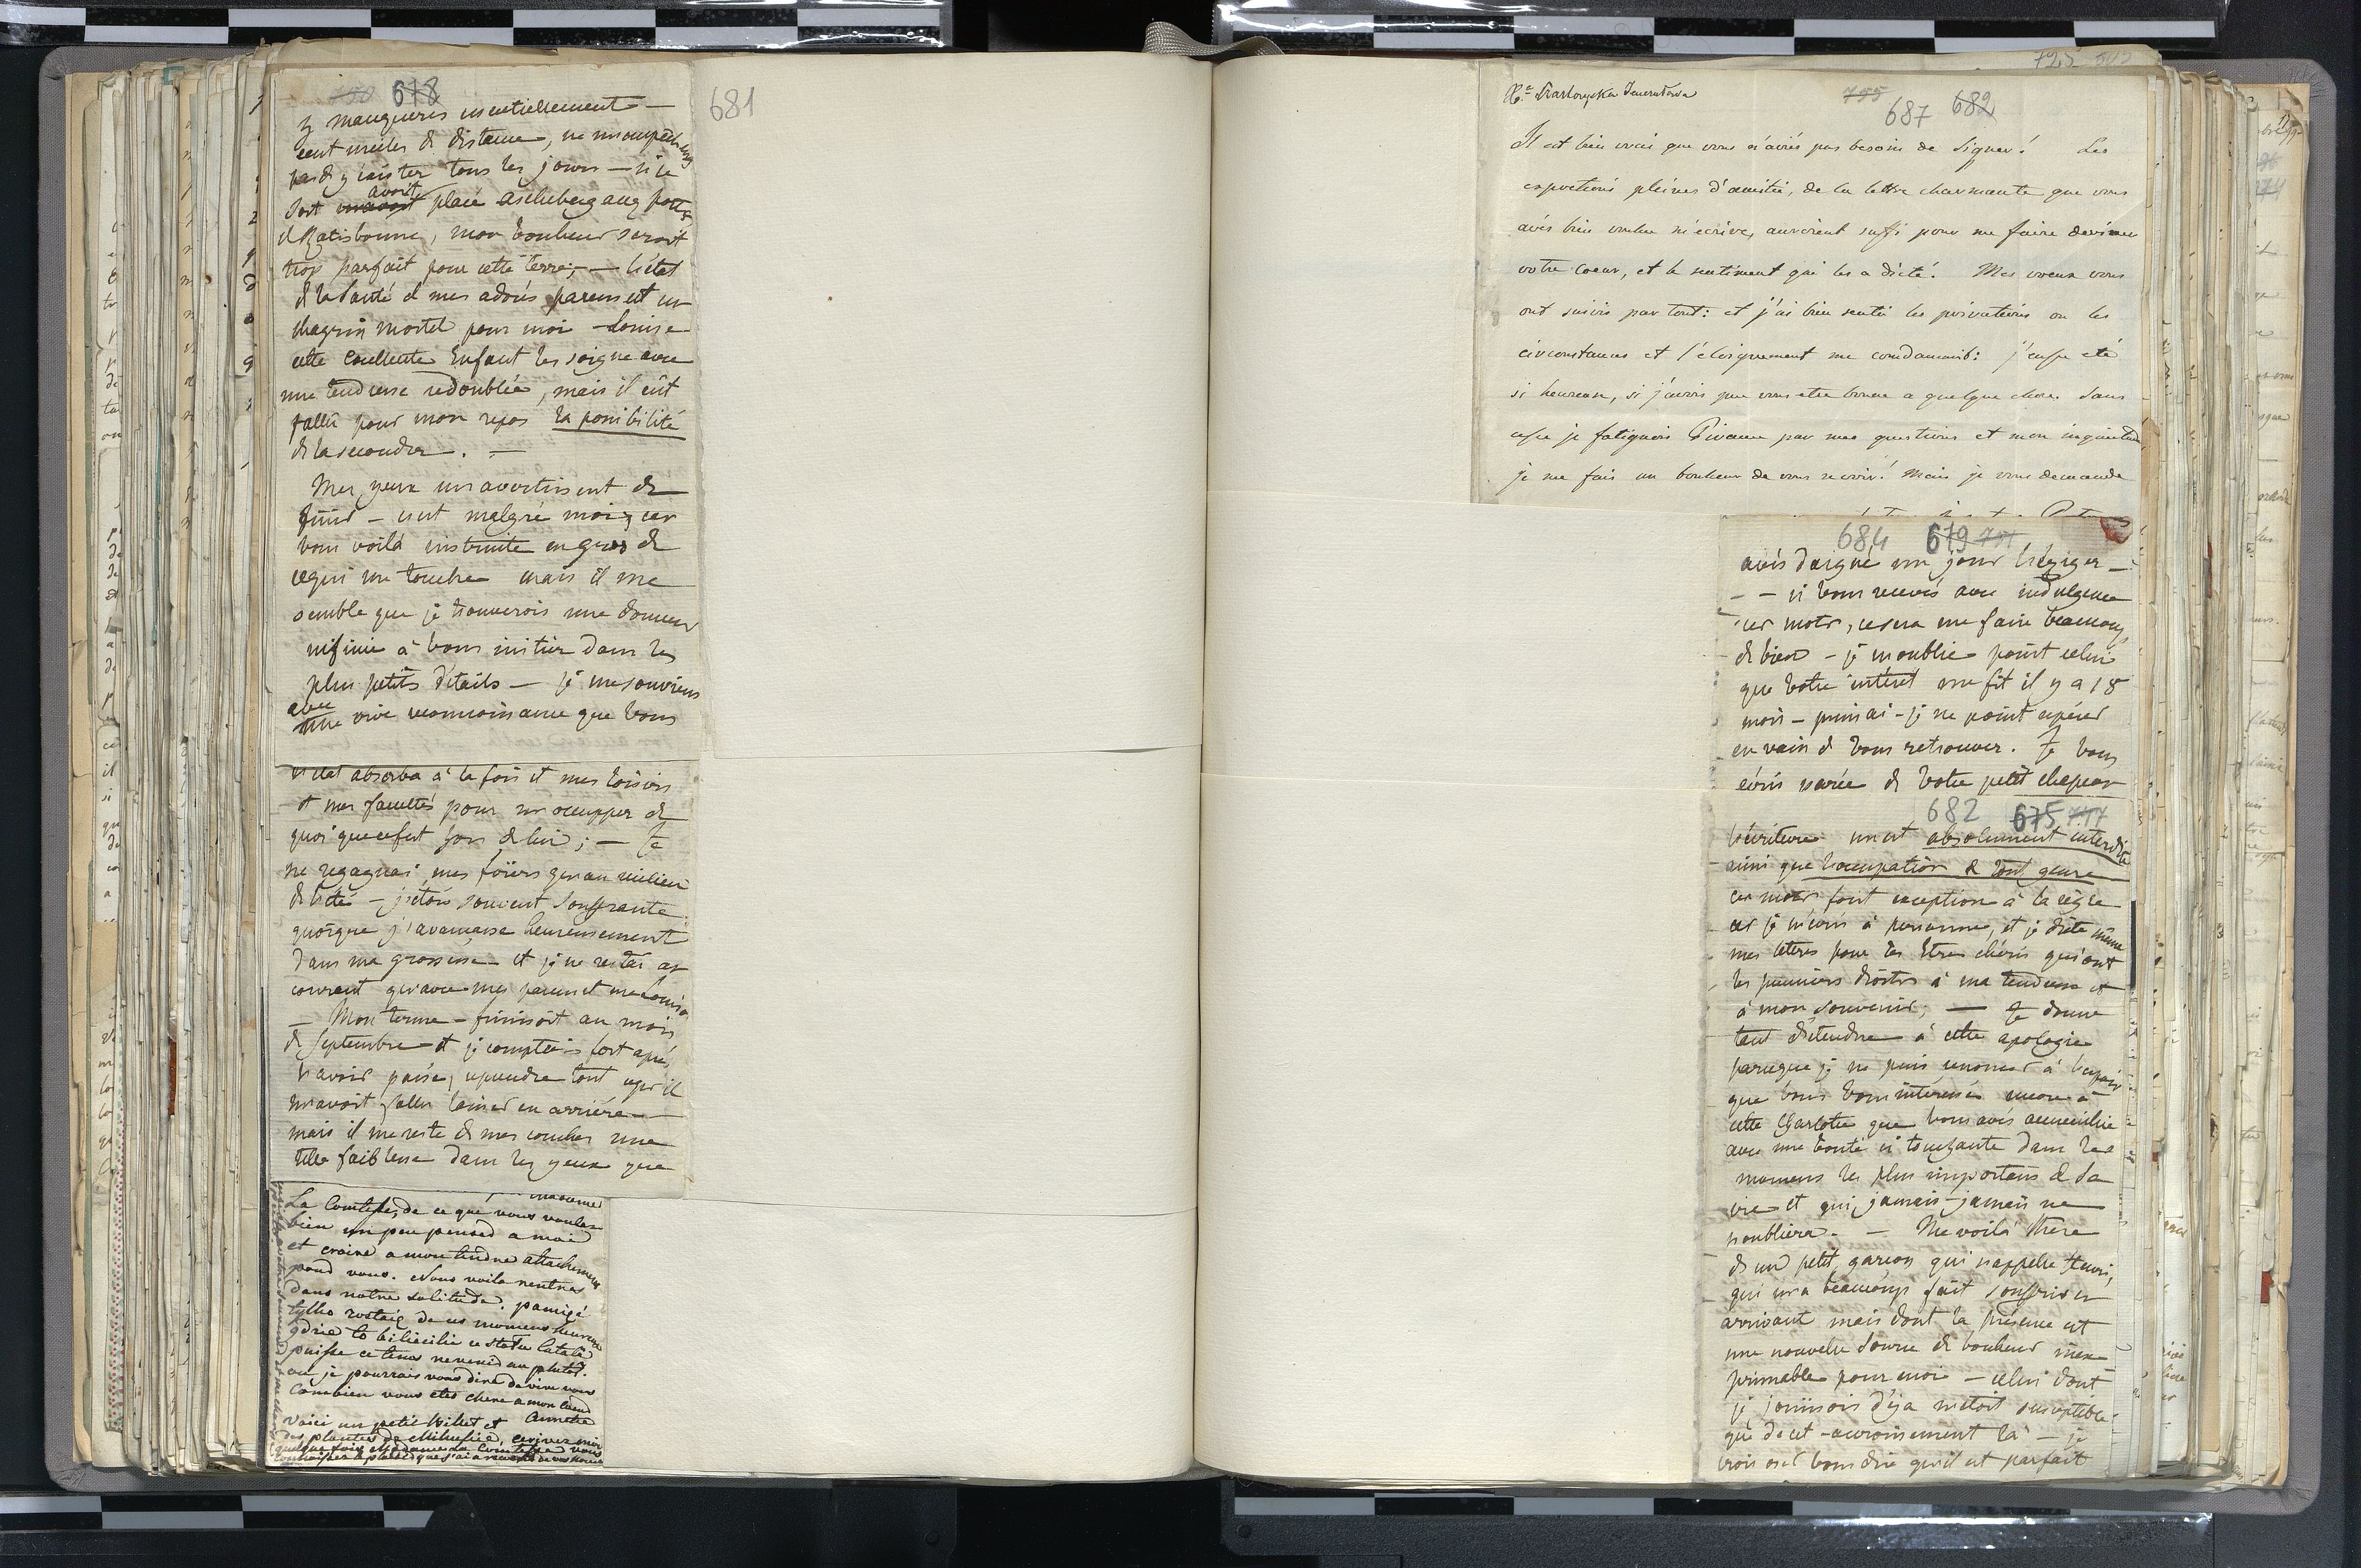 678
y manqueres essentiellement —
cent milles de distance, ne m'empêchent
pas d'y exister tous les jours — si le
sort avoit placé Ascheberg aux portes
de Ratisbonne, mon bonheur seroit
trop parfait pour cette terre; — l'état
de la santé de mes adorés parens est un
chagrin mortel pour moi — Louise
cette excellente Enfant les soigne avec
une tendresse redoublée, mais il eût
fallû pour mon repos la possibilité
de la seconder. —
Mes yeux m'avertissent de
finir — c'est malgré moi, car
vous voilà instruite en gros de
ce qui me touche mais il me
semble que je trouverois une douceur
infinie à vous initier dans les
plus petits détails — je me souviens
avec une vive reconnoissance que vous
absorba à la fois et mes loisirs
et mes facultés pour m'occupper de
quoi que ce fut hors de lui; — Je
ne regagnai mes foiers qu'au milieu
de l'été — j'étois souvent souffrante
quoique j'avançasse heureusement
dans ma grossesse — et je ne restai en
courant qu'avec mes parens et ma Louise
— Mon terme finissoit au mois
de Septembre et je comptois fort après
l'avoir passé, reprendre tout ce qu'il
m'avoit fallu laisser en arrière —
mais il me reste de mes couches une
telle faiblesse dans les yeux que
madame
La Comtesse, de ce que vous voulez
bien un peu penser a moi
et croire a mon tendre attachement
pour vous. Nous voila rentrés
dans notre solitude. pamięć
tylko zostaie de ces momens heureux
gdzie to
puisse ce tems revenir au plutot.
ou je pourrais vous dire de vive voix
Combien vous etes chere a mon cœur
Annette
Voici un petit billet et
des plantes de Mikulice, ecrivez moi
quelque fois Madame La Comtesse vous
connaissez le plaisir que j'ai a recevoir de vos nouvelles
681
725
755
687 682
Il est bien vrai que vous n'aviés pas besoin de signer! Les
expressions pleines d'amitié, de la lettre charmante que vous
avés bien voulu m'écrire, auroient suffi pour me faire deviner
votre coeur, et le sentiment qui les a dicté. Mes voeux vous
ont suivis par tout: et j'ai bien senti les privations ou les
circonstances et l'éloignement me condamnoit: j'eusse eté
si heureuse, si j'avois pu vous etre bonne a quelque chose. Sans
cesse je fatiguois par mes questions et mon inquietude
je me fais un bonheur de vous revoir! Mais je vous demande
684 679 751
avés daigné un jour l'exiger —
— si vous recevés avec indulgence
ces mots, ce sera me faire beaucoup
de bien — je n'oublie point celui
que votre intéret me fit il y a 18
mois — puissai-je ne point espérer
en vain de vous retrouver. Je vous
écris parée de votre petit chapeau
682 675 747
l'écriture m'est absolument interdite
ainsi que l'occupation de tout genre
ces mots font exception à la règle
car je n'écris à personne, et je dicte même
mes lettres pour les Etres chéris qui ont
les premiers droits à ma tendresse et
à mon souvenir; — Je donne
tant d'étendue à cette apologie
parceque je ne puis renoncer à l'espoir
que vous vous intéressés encore à
cette Charlotte que vous avés accueillie
avec une bonté si touchante dans les
momens les plus importans de sa
vie et qui jamais — jamais ne
l'oubliera. — Me voilà Mère
de un petit garçon qui s'appelle Henri,
qui m'a beaucoup fait souffrir en
arrivant mais dont la présence est
une nouvelle source de bonheur inex-
primable pour moi — celui dont
je jouissois déja n'étoit susceptible
que de cet accroissement là — je
crois oser vous dire qu'il est parfait